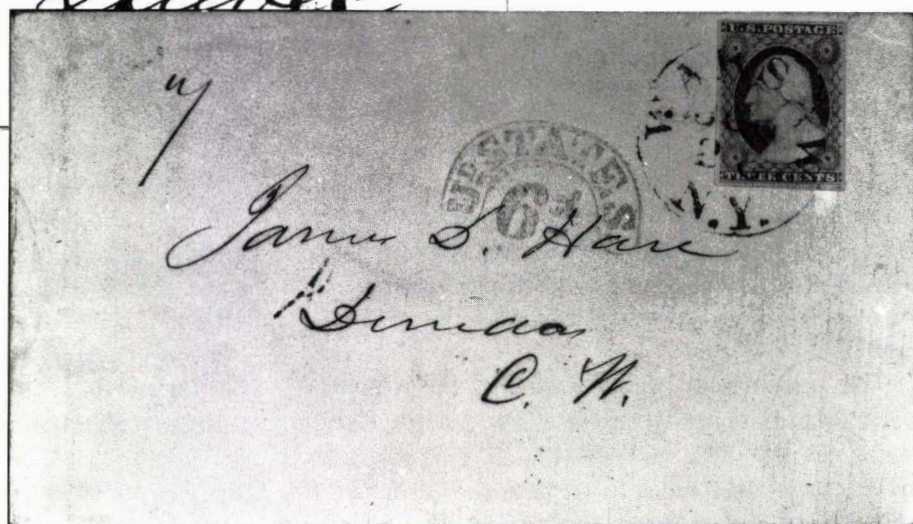 U.S. POSTAGE
THREE CENTS
N.Y.
U. STATES
6d
James S. Hare
Dundas
C. W.